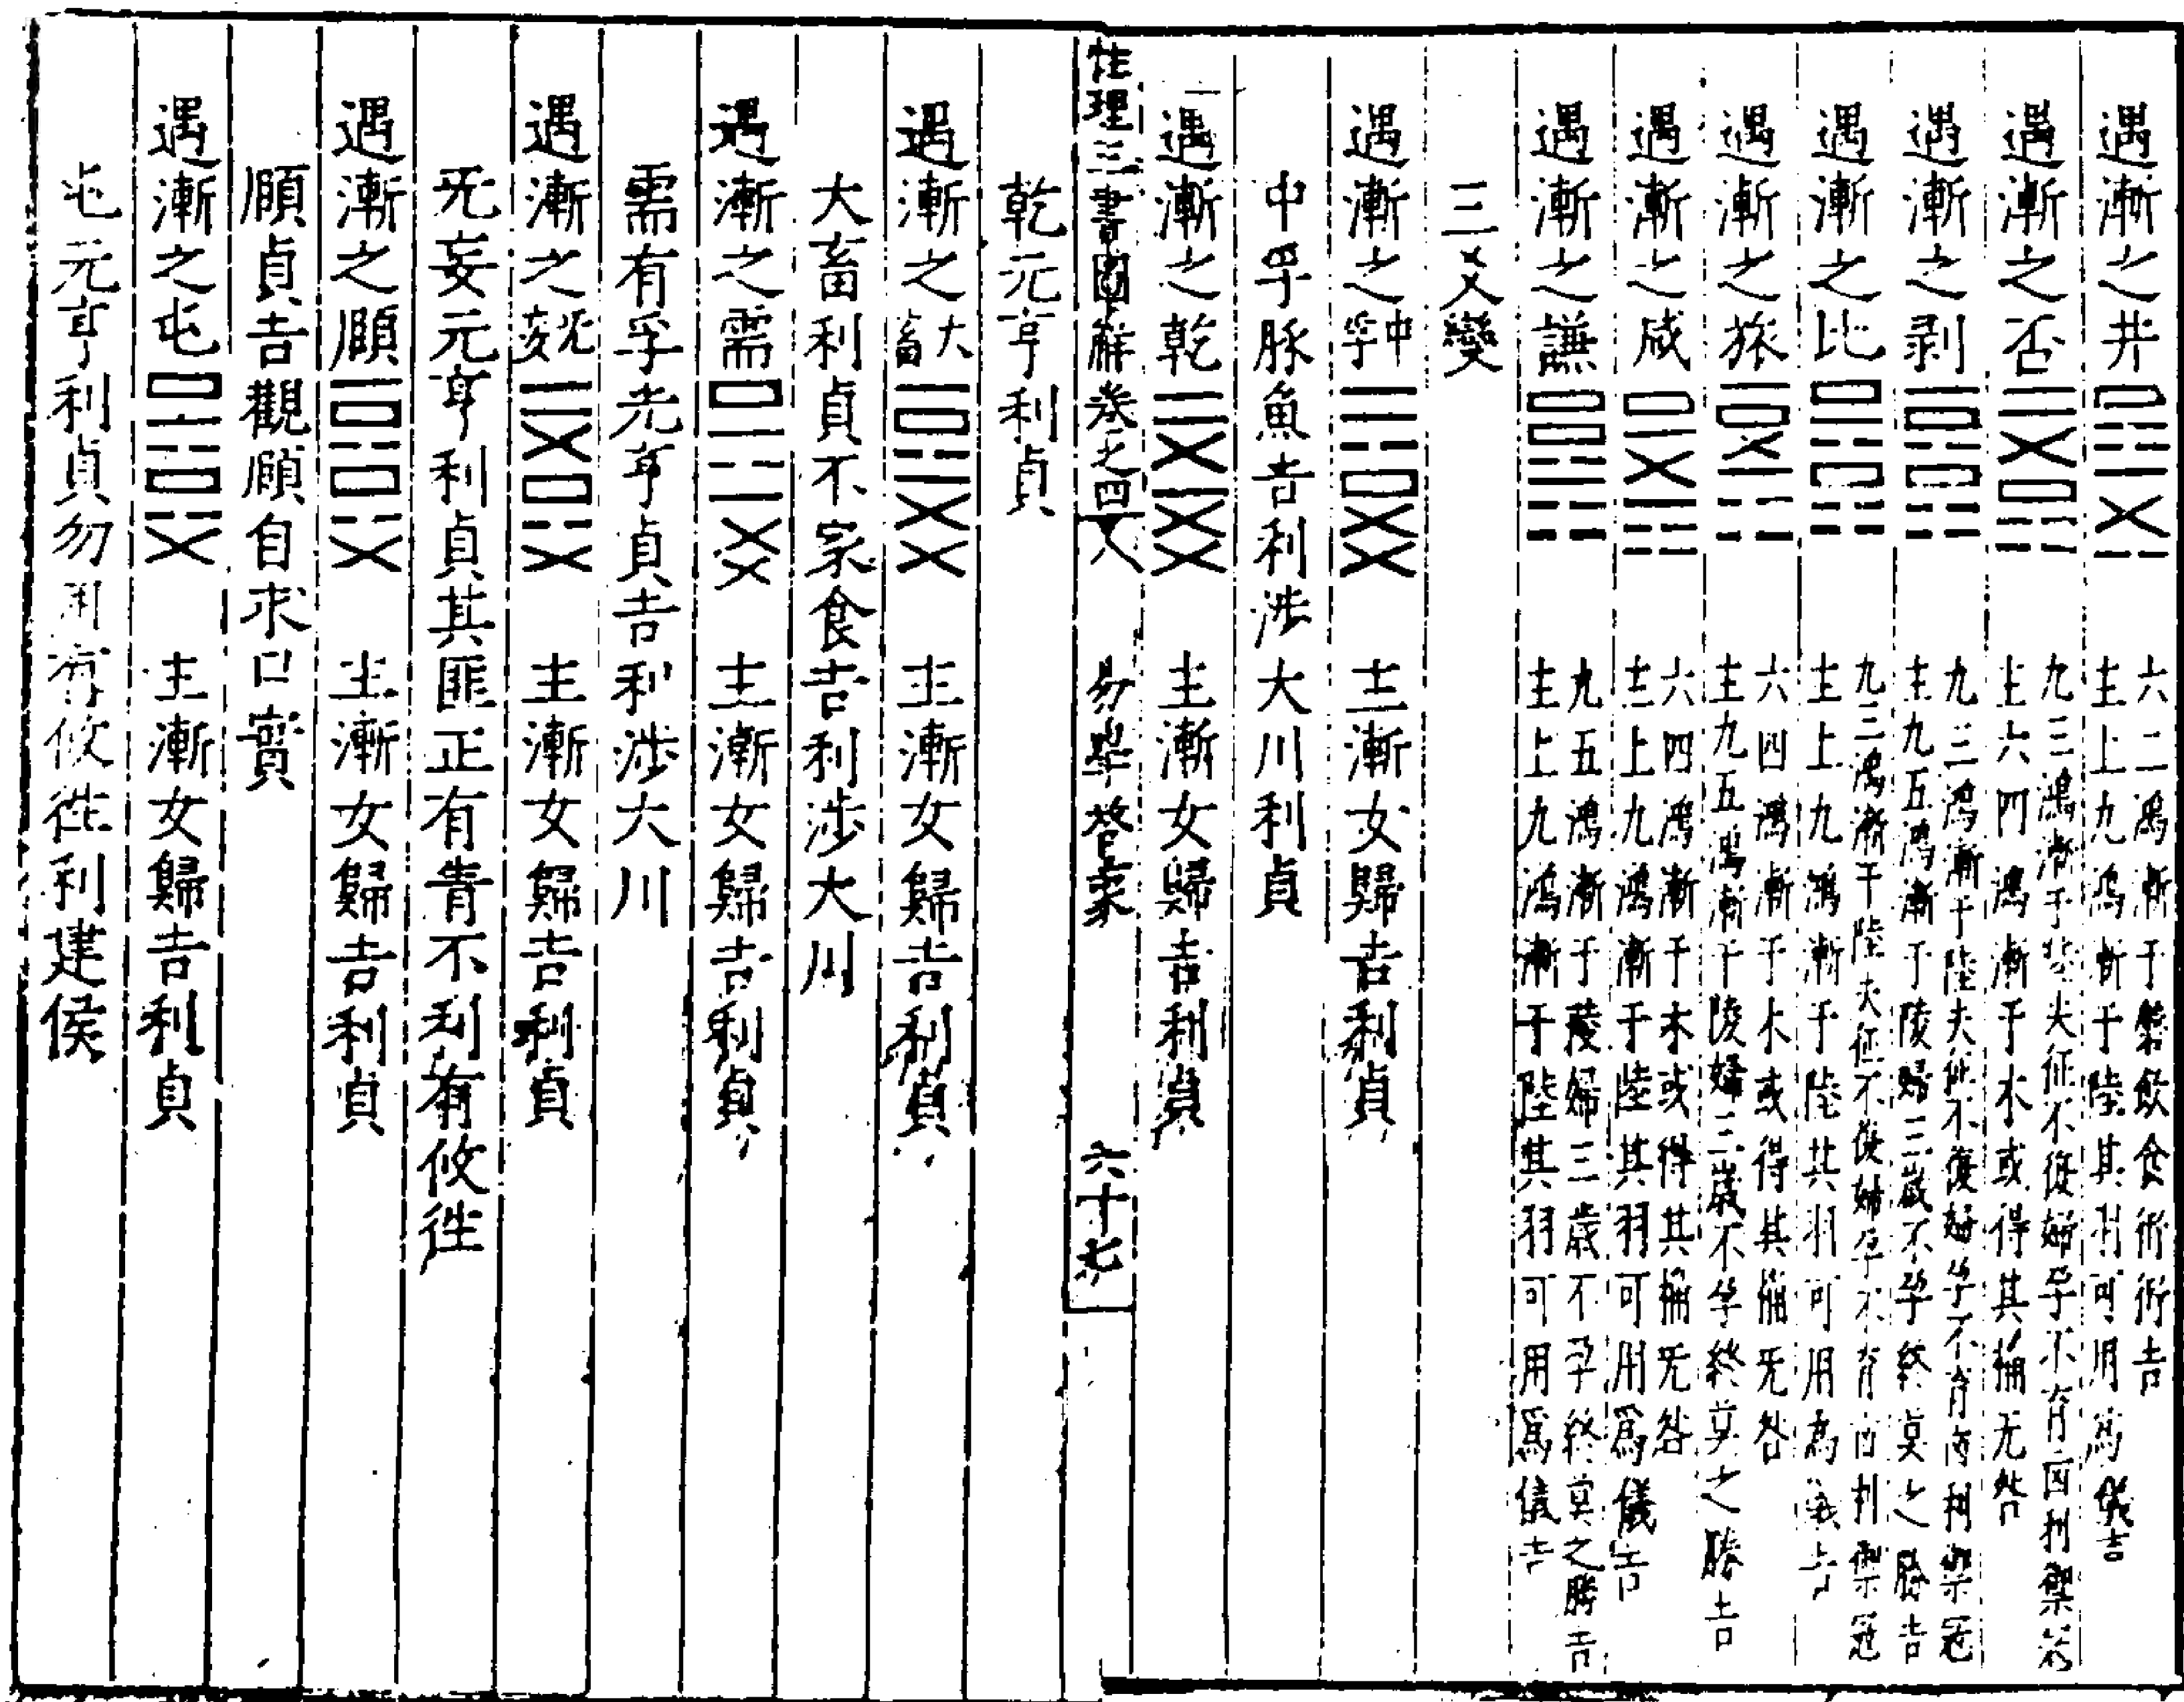 遇漸之井 六二鴻漸于磐飲食衎衎吉
主上九鴻漸于陸其羽可用為儀吉
遇漸之否 九三鴻漸于陸夫征不復婦孕不育凶利禦寇
主六四鴻漸于木或得其桷无咎
遇漸之剥 九三鴻漸于陸夫征不復婦孕不育凶利禦冦
主九五鴻漸于陵婦三歲不孕終莫之勝吉
遇漸之比 九三鴻漸于陸夫征不復婦孕不育凶利禦冦
主上九鴻漸于陸其羽可用為儀吉
遇漸之旅 六四鴻漸于木或得其桷无咎
主九五鴻漸于陵婦三歲不孕終莫之勝吉
遇漸之咸 六四鴻漸于木或得其桷无咎
主上九鴻漸于陸其羽可用爲儀吉
遇漸之謙 九五鴻漸于陵婦三歲不孕終莫之勝吉
主上九鴻漸于陸其羽可用爲儀吉
三爻變
遇漸之中孚 主漸女歸吉利貞
中孚豚魚吉利涉大川利貞
遇漸之乾 主漸女歸吉利貞
性理三書圖解卷之四 易學啓蒙 六十七
乾元亨利貞
遇漸之大畜 主漸女歸吉利貞
大畜利貞不家食吉利涉大川
遇漸之需 主漸女歸吉利貞
需有孚光亨貞吉利涉大川
遇漸之无妄 主漸女歸吉利貞
无妄元亨利貞其匪正有眚不利有攸徃
遇漸之頤 主漸女歸吉利貞
頤貞吉觀頤自求口實
遇漸之屯 主漸女歸吉利貞
屯元亨利貞勿用有攸徃利建侯